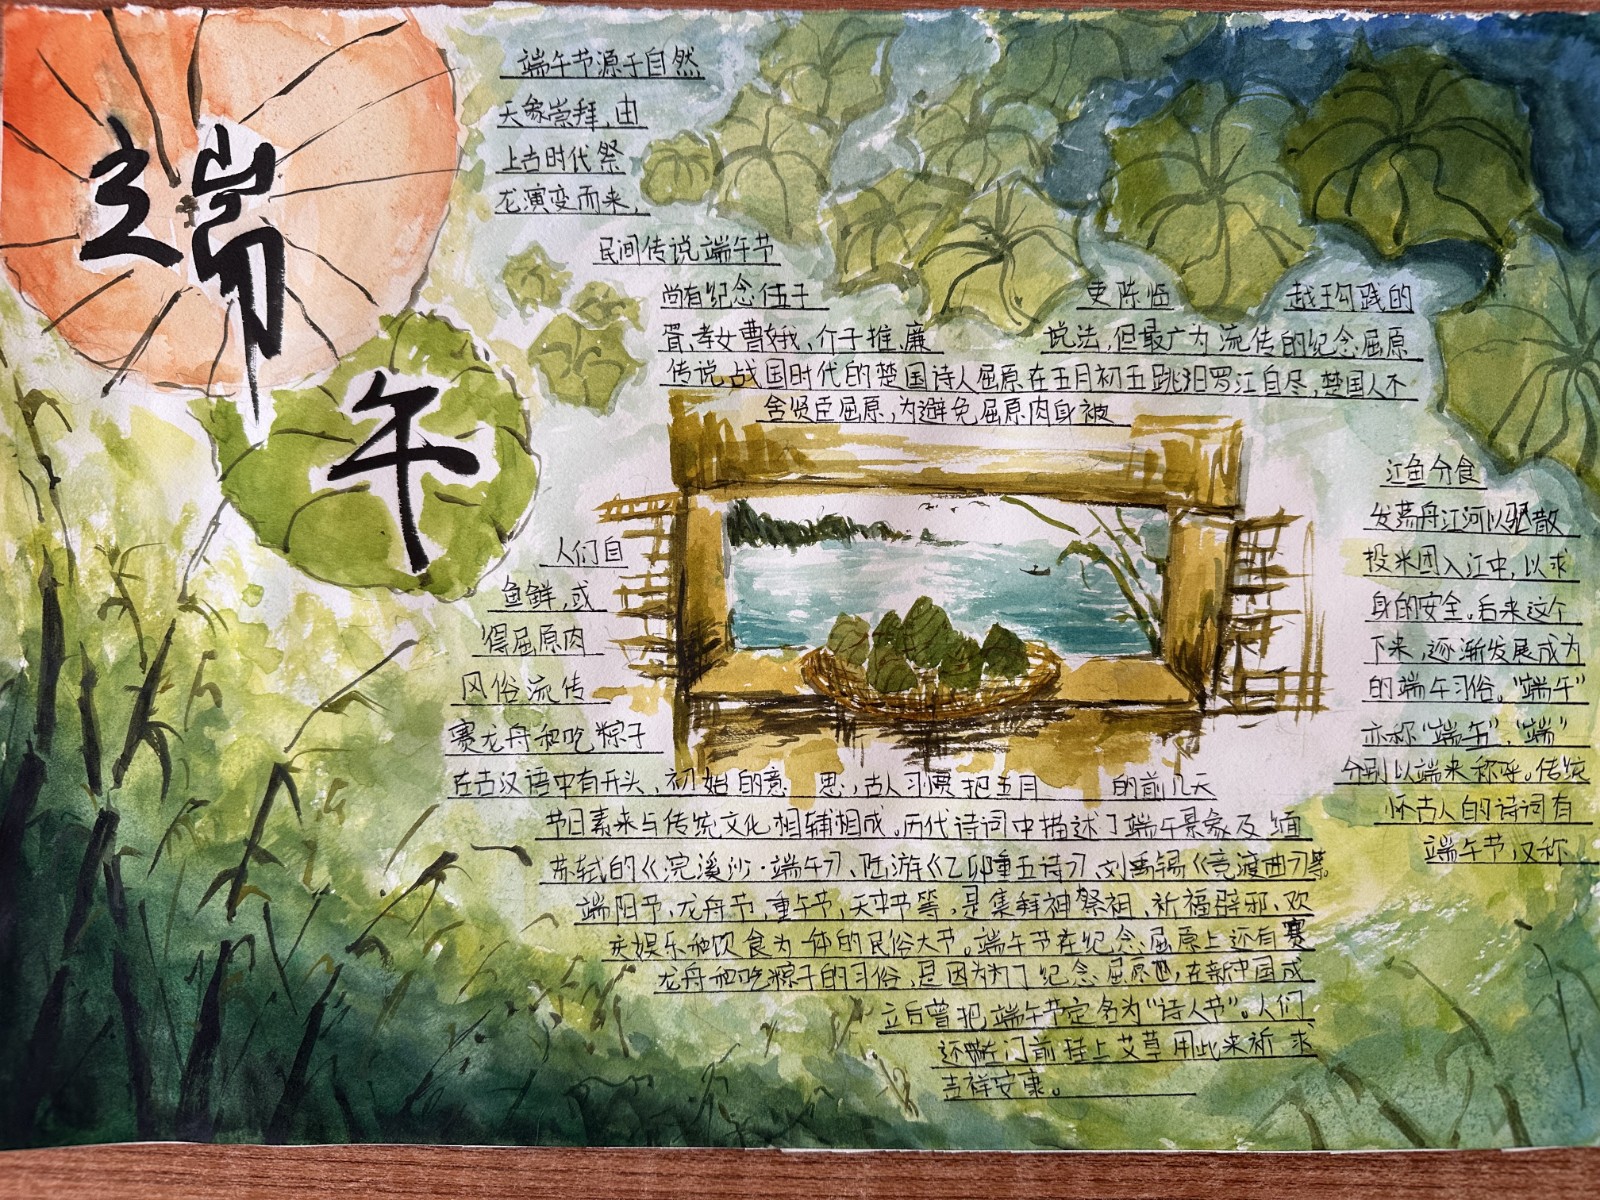 端
午
端午节源于自然
天象崇拜,由
上古时代祭
龙演变而来,
民间传说端午节
尚有纪念伍子
吏陈临
越王勾践的
胥,孝女曹娥,介子推,廉
说法,但最广为流传的纪念屈原
传说,战国时代的楚国诗人屈原在五月初五跳汨罗江自尽,楚国人不
舍贤臣屈原,为避免屈原肉身被
江鱼分食
人们自
发荡舟江河以驱散
鱼鲜,或
投米团入江中,以求
得屈原肉
身的安全。后来这个
风俗流传
下来,逐渐发展成为
赛龙舟和吃粽子
的端午习俗。“端午”
亦称“端五”,“端”
在古汉语中有开头、初始的意
思,古人习惯把五月
的前几天
分别以端来称呼。传统
节日素来与传统文化相辅相成。历代诗词中描述了端午景象及缅
怀古人的诗词有
苏轼的《浣溪沙·端午》、陆游《乙卯重五诗》刘禹锡《竞渡曲》等
端午节又称
端阳节,龙舟节,重午节,天中节等,是集拜神祭祖、祈福辟邪、欢
庆娱乐和饮食为一体的民俗大节。端午节在纪念屈原上还有赛
龙舟和吃粽子的习俗,是因为为了纪念屈原,在新中国成
立后曾把端午节定名为“诗人节”。人们
还门前挂上艾草用此来祈求
吉祥安康。